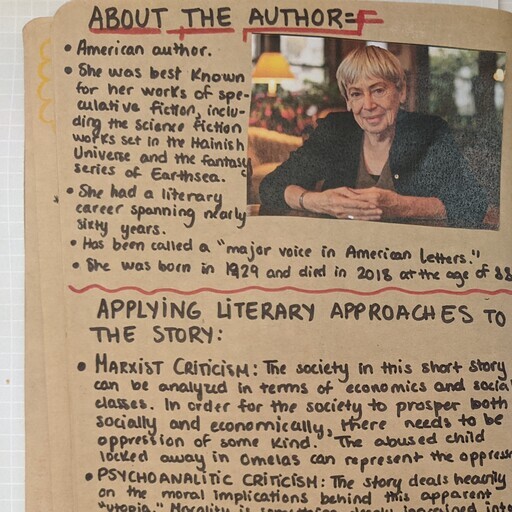 ABOUT THE AUTHOR=
• American author.
• She was best known
for her works of spe-
culative fiction, inclu-
ding the science fiction
works set in the Hainish
Universe and the fantasy
series of Earthsea.
• She had a literary
career spanning nearly
sixty years.
• Has been called a "major voice in American Letters."
• She was born in 1929 and died in 2018 at the age of 88
APPLYING LITERARY APPROACHES TO
THE STORY:
• MARXIST CRITICISM: The society in this short story
can be analyzed in terms of economics and social
classes. In order for the society to prosper both
socially and economically, there needs to be
oppression of some kind. The abused child
locked away in Omelas can represent the oppress
• PSYCHOANALITIC CRITICISM: The story deals heavily
on the moral implications behind this apparent
"utopia." Morality is